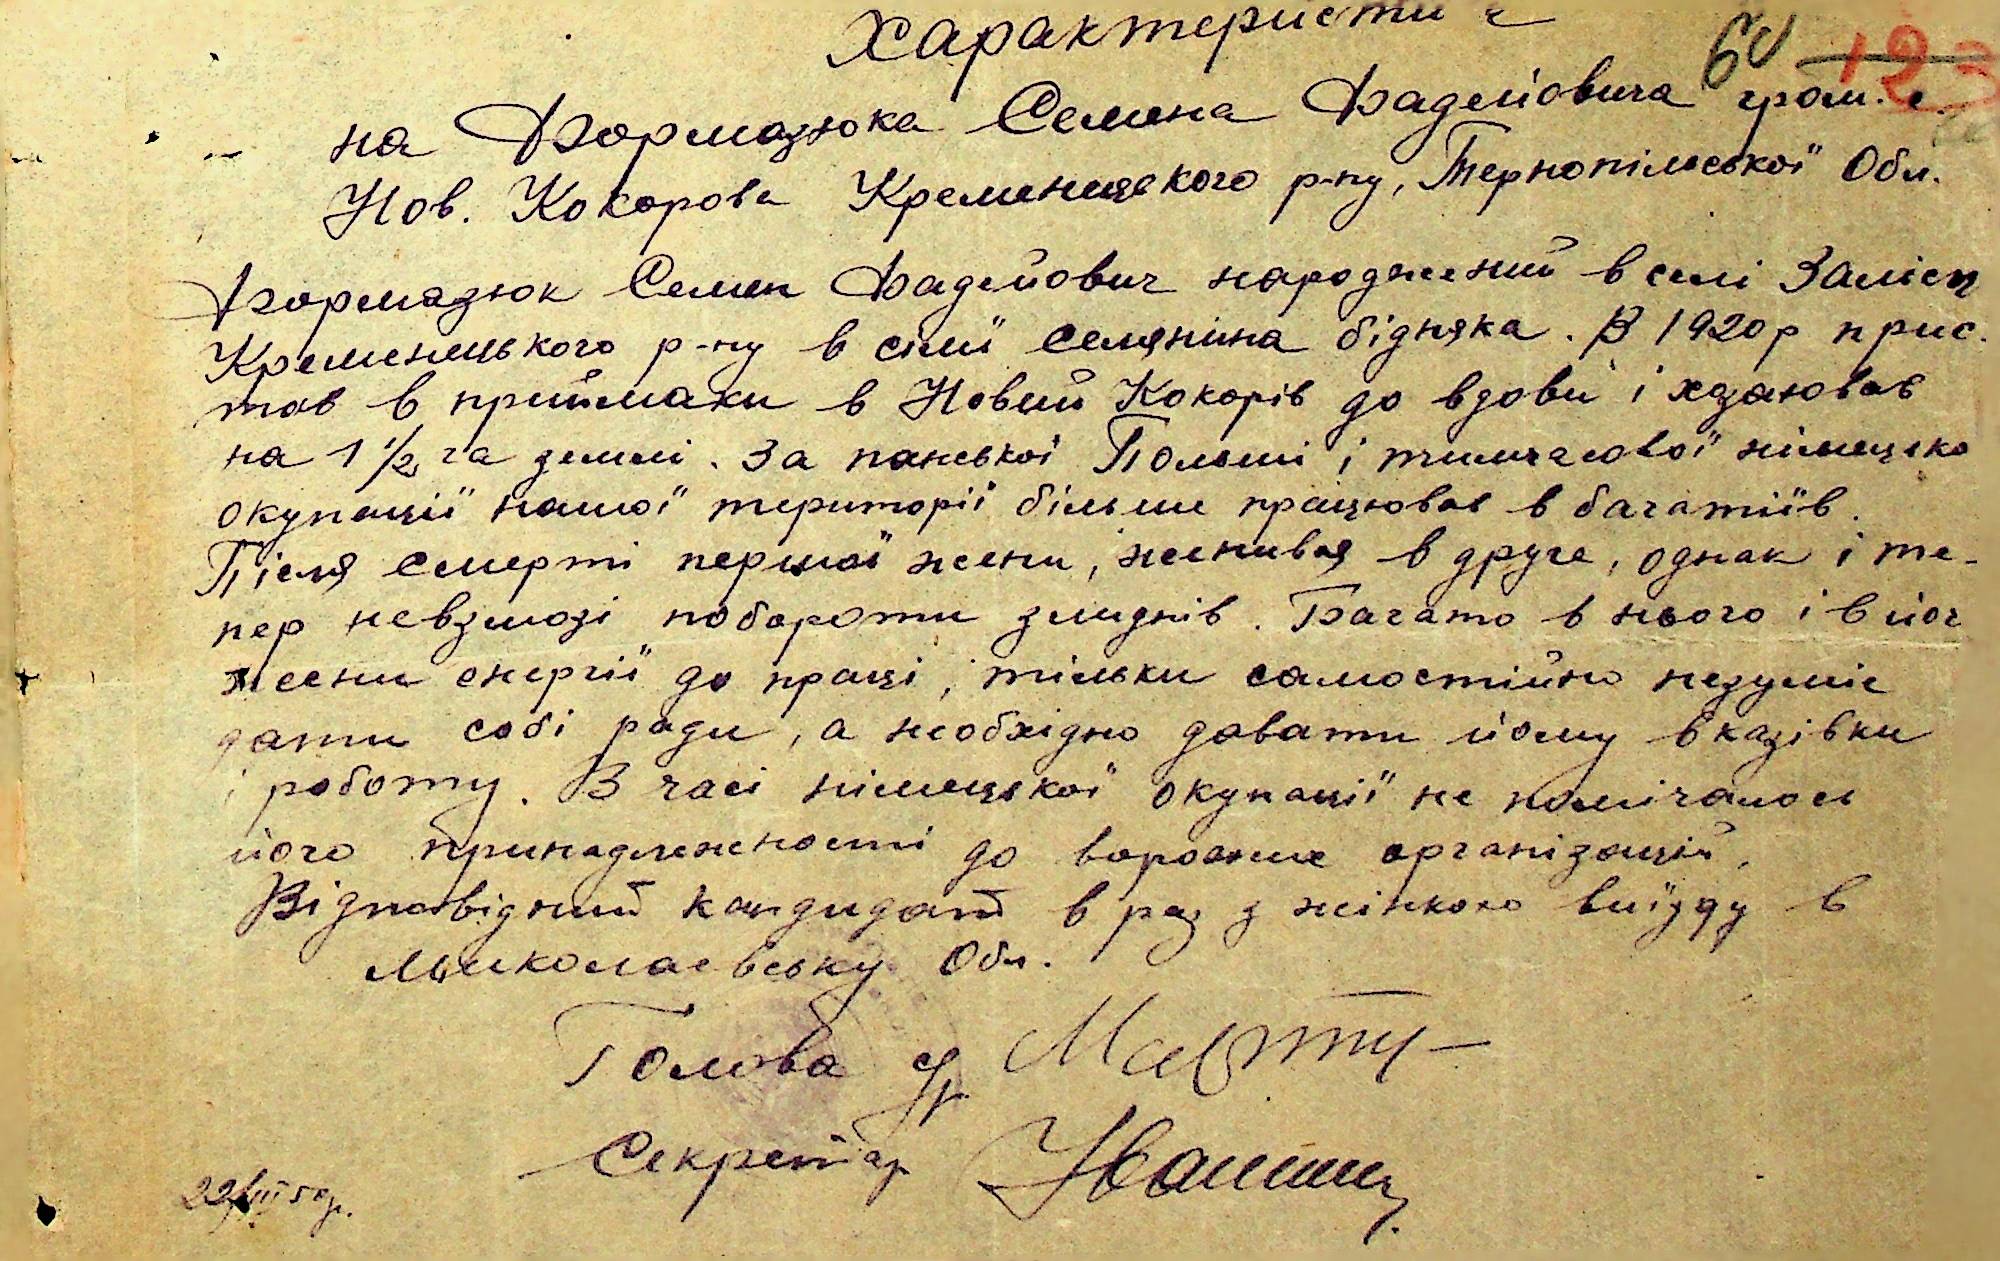 Характеристи
60 123
на Бормазюка Семена Фадейовича гром. с.
Нов. Кокорова Кременецького р-ну, Тернопільської Обл.
Бормазюк Семен Фадейович народжений в селі Заліси
Кременецького р-ну в сімї селяніна бідняка. В 1920р прис-
тав в приймаки в Новий Кокорів до вдови і хазяював
на 1 1/2 га землі. За панської Польші і тимчасової німецько
окупації нашої території більше працював в багатіїв.
Після смерті першої жени, женився в друге, однак і те-
пер невзмозі побороти злиднів. Багато в нього і в йог
жени енергії до праці, тільки самостійно незуміє
дати собі ради, а необхідно давати йому вказівки
і роботу. В часі німецької окупації не помічалось
його принадлежності до ворожих організацій.
Відповідний кандидат в раз з жінкою виїзду в
Миколаєвську Обл.
Голова с/р
Секретар
22/III 50р.